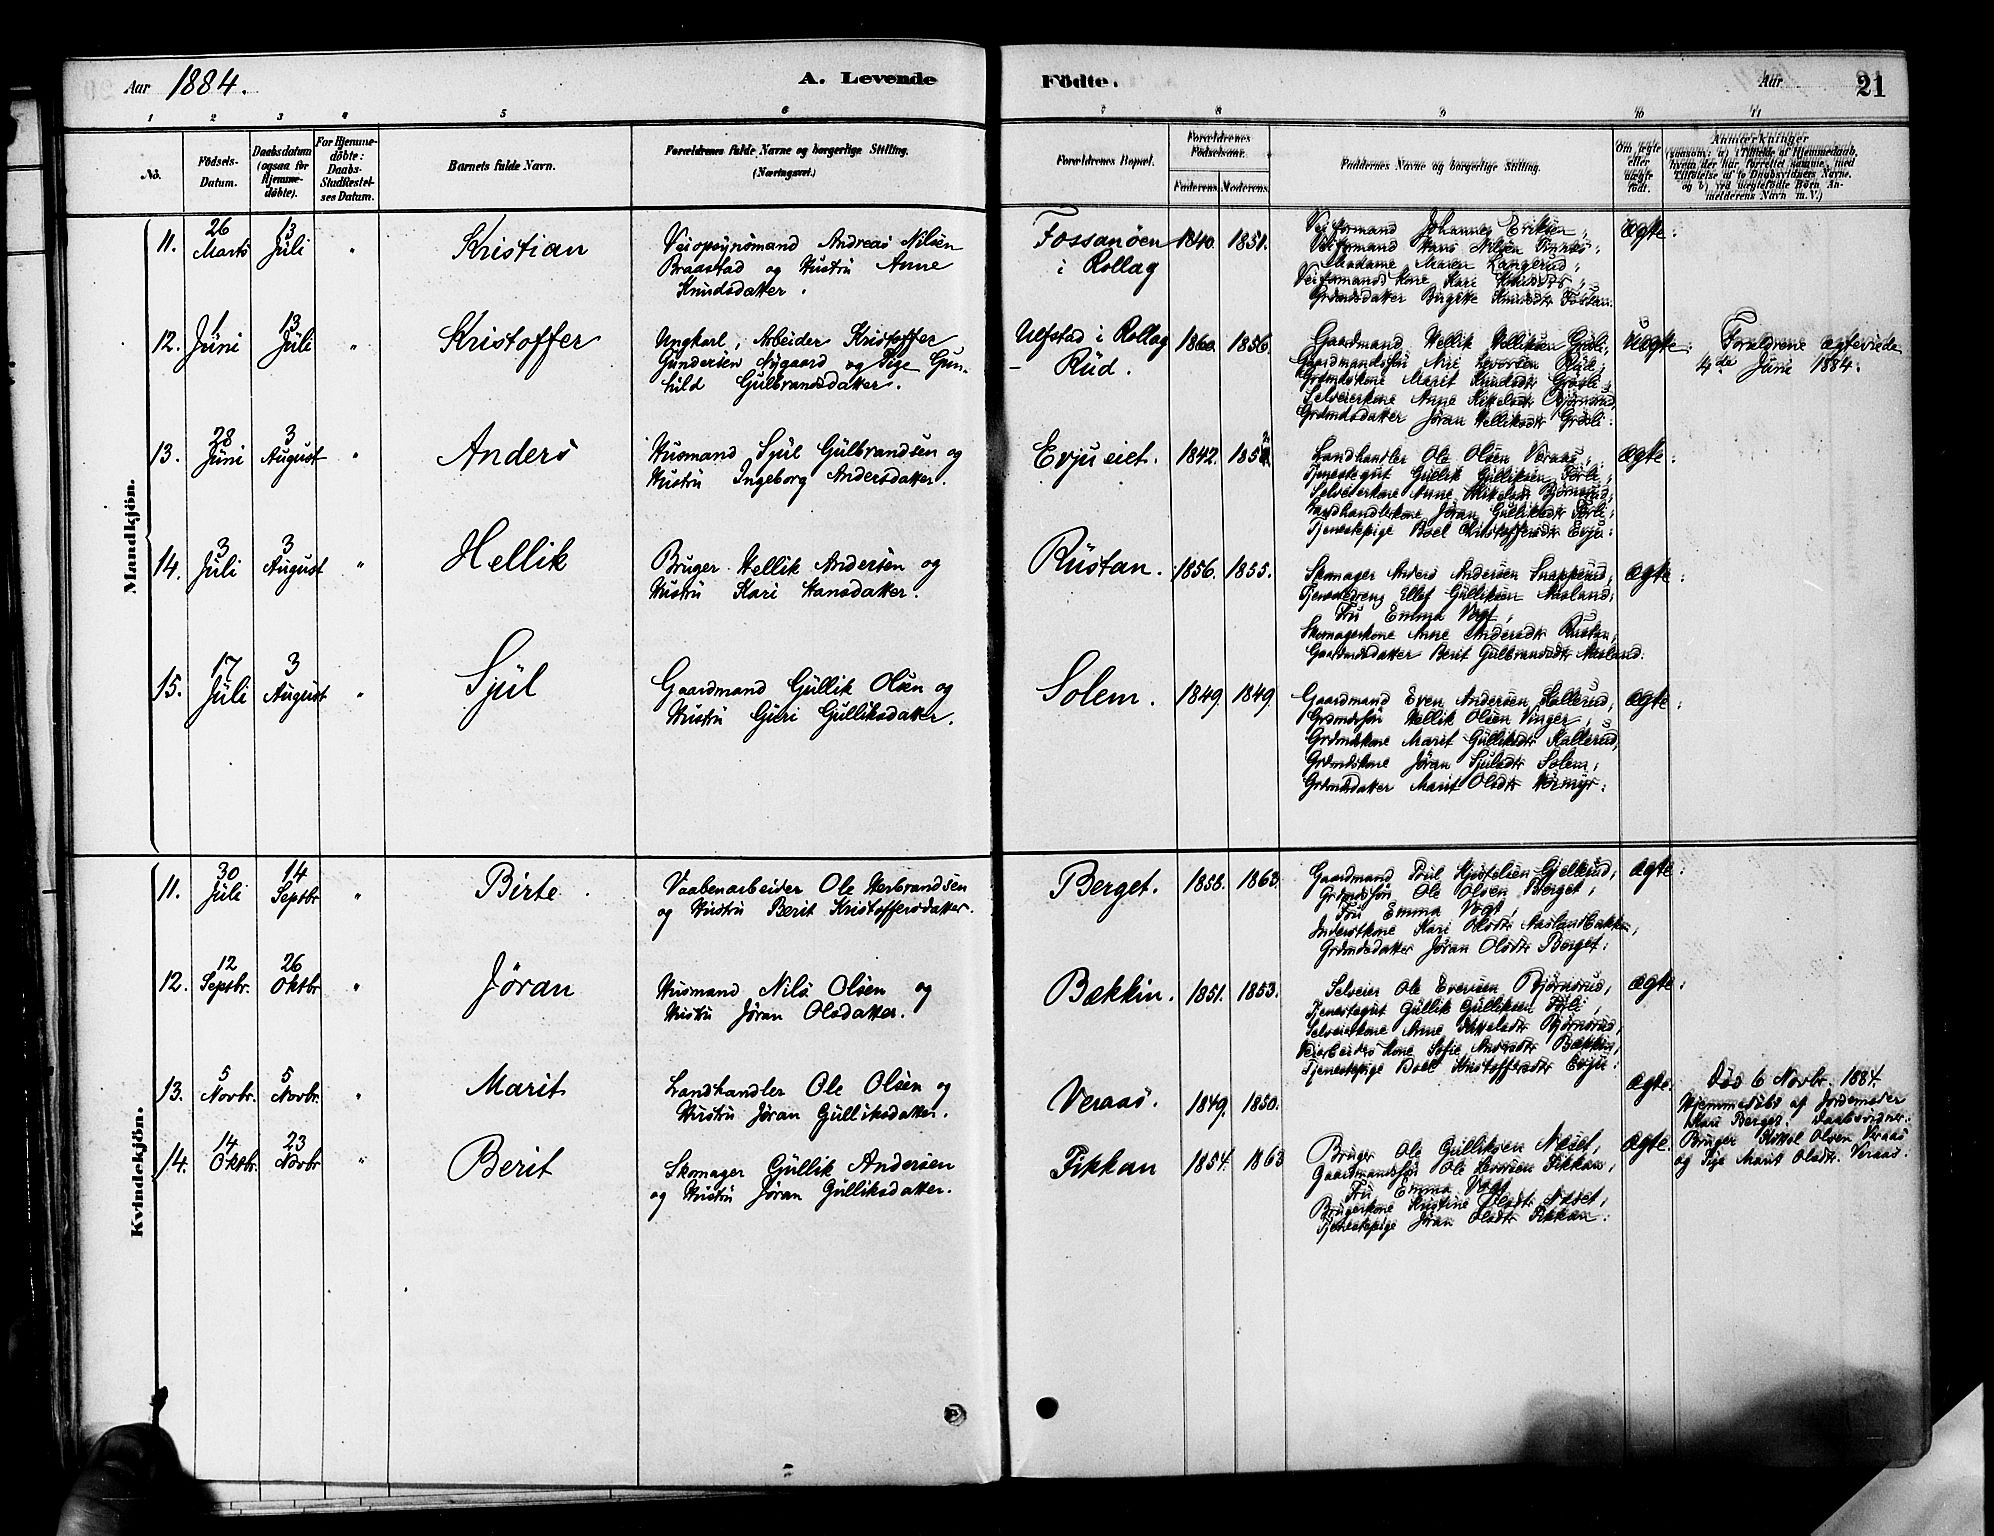 Aar 1884.
A. Levende
Fødte.
Aar
21
1 2 3 4 5 6 7 8 9 10 11
No.
Fødsels-
Datum.
Daabsdatum
(ogsaa for
Hjemme-
døbte).
For Hjemme-
døbte:
Daabs-
Stadfæstel-
ses Datum.
Barnets fulde Navn.
Forældrenes fulde Navne og borgerlige Stilling.
(Næringsvei.)
Forældrenes Bopæl.
Forældrenes
Fødselsaar.
Faderens. Moderens.
Faddernes Navne og borgerlige Stilling.
Om ægte
eller
uægte
født.
Anmærkninger
Mandkjön.
11. 26 Marts 13 Juli " Kristian
Veiopsynsmand Andreas Nilsen
Braastad og Hustru Anne
Knudsdatter.
Fossanöen
i Rollag
1840. 1851.
Veiformand Johannes Eriksen,
Veiformand Hans Nilsen
Madame Maren Langerud,
Veiformands Kone Kari
Grdmdsdatter Birgitte Knudsdtr
Ægte.
12. 1 Juni 13 Juli " Kristoffer
Ungkarl, Arbeider Kristoffer
Gundersen Nygaard og Pige Gun-
hild Gulbrandsdatter.
Ulfstad i Rollag
- Rud.
1860. 1856.
Gaardmand Hellik Helliksen
Gaardmandssøn Levorsen Rud,
Grdmdskone Marit Knudsdtr
Selveierkone Anne Kittelsdtr Bjørnsrud,
Grdmdsdatter Jøran Helliksdtr
Uægte.
Forældrene ægteviede
4de Juni 1884.
13. 28 Juni 3 August " Anders
Husmand Sjul Gulbrandsen og
Hustru Ingeborg Andersdatter.
Evjueiet.
1842. 1852
Landhandler Ole Olsen Veraas,
Tjenestegut Gullik Gulliksen Førli,
Selveierkone Anne Kittelsdtr Bjørnsrud,
Landhandlerkone Jøran Gulliksdtr
Tjenestepige Boel Kristoffersdtr Evju.
Ægte.
14. 3 Juli 3 August " Hellik
Bruger Hellik Andersen og
Hustru Kari Hansdatter.
Rustan.
1856. 1855.
Skomager Anders Andersen
Tjenestedreng Ellef Gulliksen Aasland,
Fru Emma Vogt,
Skomagerkone Anne Andersdtr Rustan,
Gaardmdsdatter Berit Gulbrandsdtr Aasland.
Ægte.
15. 17 Juli 3 August " Sjul
Gaardmand Gullik Olsen og
Hustru Guri Gulliksdatter.
Solem.
1849. 1849.
Gaardmand Even Andersen Kallerud,
Grdmdssøn Hellik Olsen Vinger,
Grdmdskone Marit Gulliksdtr Kallerud,
Grdmdskone Jøran Sjulsdtr Solem,
Grdmdsdatter Marit Olsdtr
Ægte.
Kvindekjön.
11. 30 Juli 14 Septbr " Birte
Vaabenarbeider Ole Herbrandsen
og Hustru Berit Kristoffersdatter.
Berget.
1858. 1863.
Gaardmand
Grdmdssøn Ole Olsen Berget,
Fru Emma Vogt,
Inderstkone Kari Olsdtr Aaslandbakken,
Grdmdsdatter Jøran Olsdtr Berget.
Ægte.
12. 12 Septbr. 26 Oktbr " Jøran
Husmand Nils Olsen og
Hustru Jøran Olsdatter.
Bækkin.
1851. 1853.
Selveier Ole Evensen Bjørnsrud,
Tjenestegut Gullik Gulliksen Førli,
Selveierkone Anne Kittelsdtr Bjørnsrud,
Veiarbeiders Kone Sofie Andersdtr Bækkin,
Tjenestepige Boel Kristoffersdtr Evju.
Ægte.
13. 5 Novbr. 5 Novbr. " Marit
Landhandler Ole Olsen og
Hustru Jøran Gulliksdatter.
Veraas.
1849. 1850.
Ægte.
Død 6 Novbr. 1884.
Hjemmedøbt af Jordemoder
Kari Berget. Daabsvidner:
Bruger Kittel Olsen Veraas
og Pige Marit Olsdtr. Veraas.
14. 14 Oktbr. 23 Novbr " Berit
Skomager Gullik Andersen
og Hustru Jøran Gulliksdatter.
Fikkan
1854. 1863
Bruger Ole Gulliksen Næset,
Gaardmandssøn Ole Levorsen Fikkan,
Fru Emma Vogt,
Brugerkone Kristine Olsdtr Næset,
Tjenestepige Jøran Olsdtr Fikkan.
Ægte.